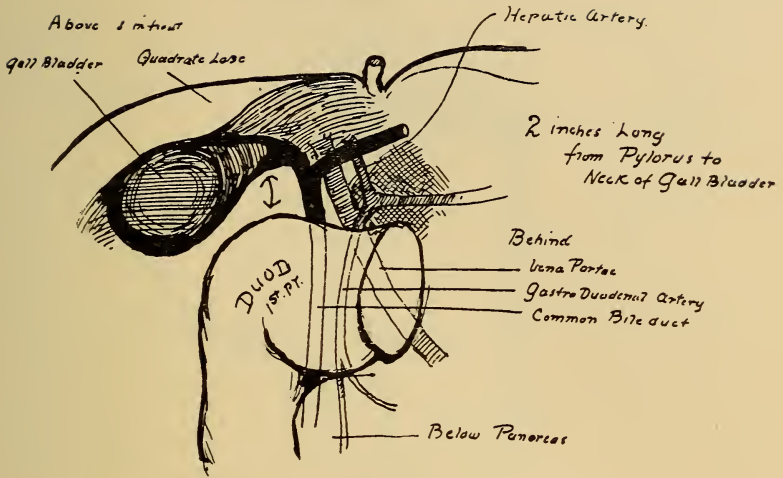 Above & infront
Gall Bladder
Quadrate Lobe
Hepatic Artery.
2 inches Long
from Pylorus to
Neck of Gall Bladder
Behind
Vena Portae
Gastro Duodenal Artery
Common Bile duct
DUOD
1st. PT.
Below Pancreas